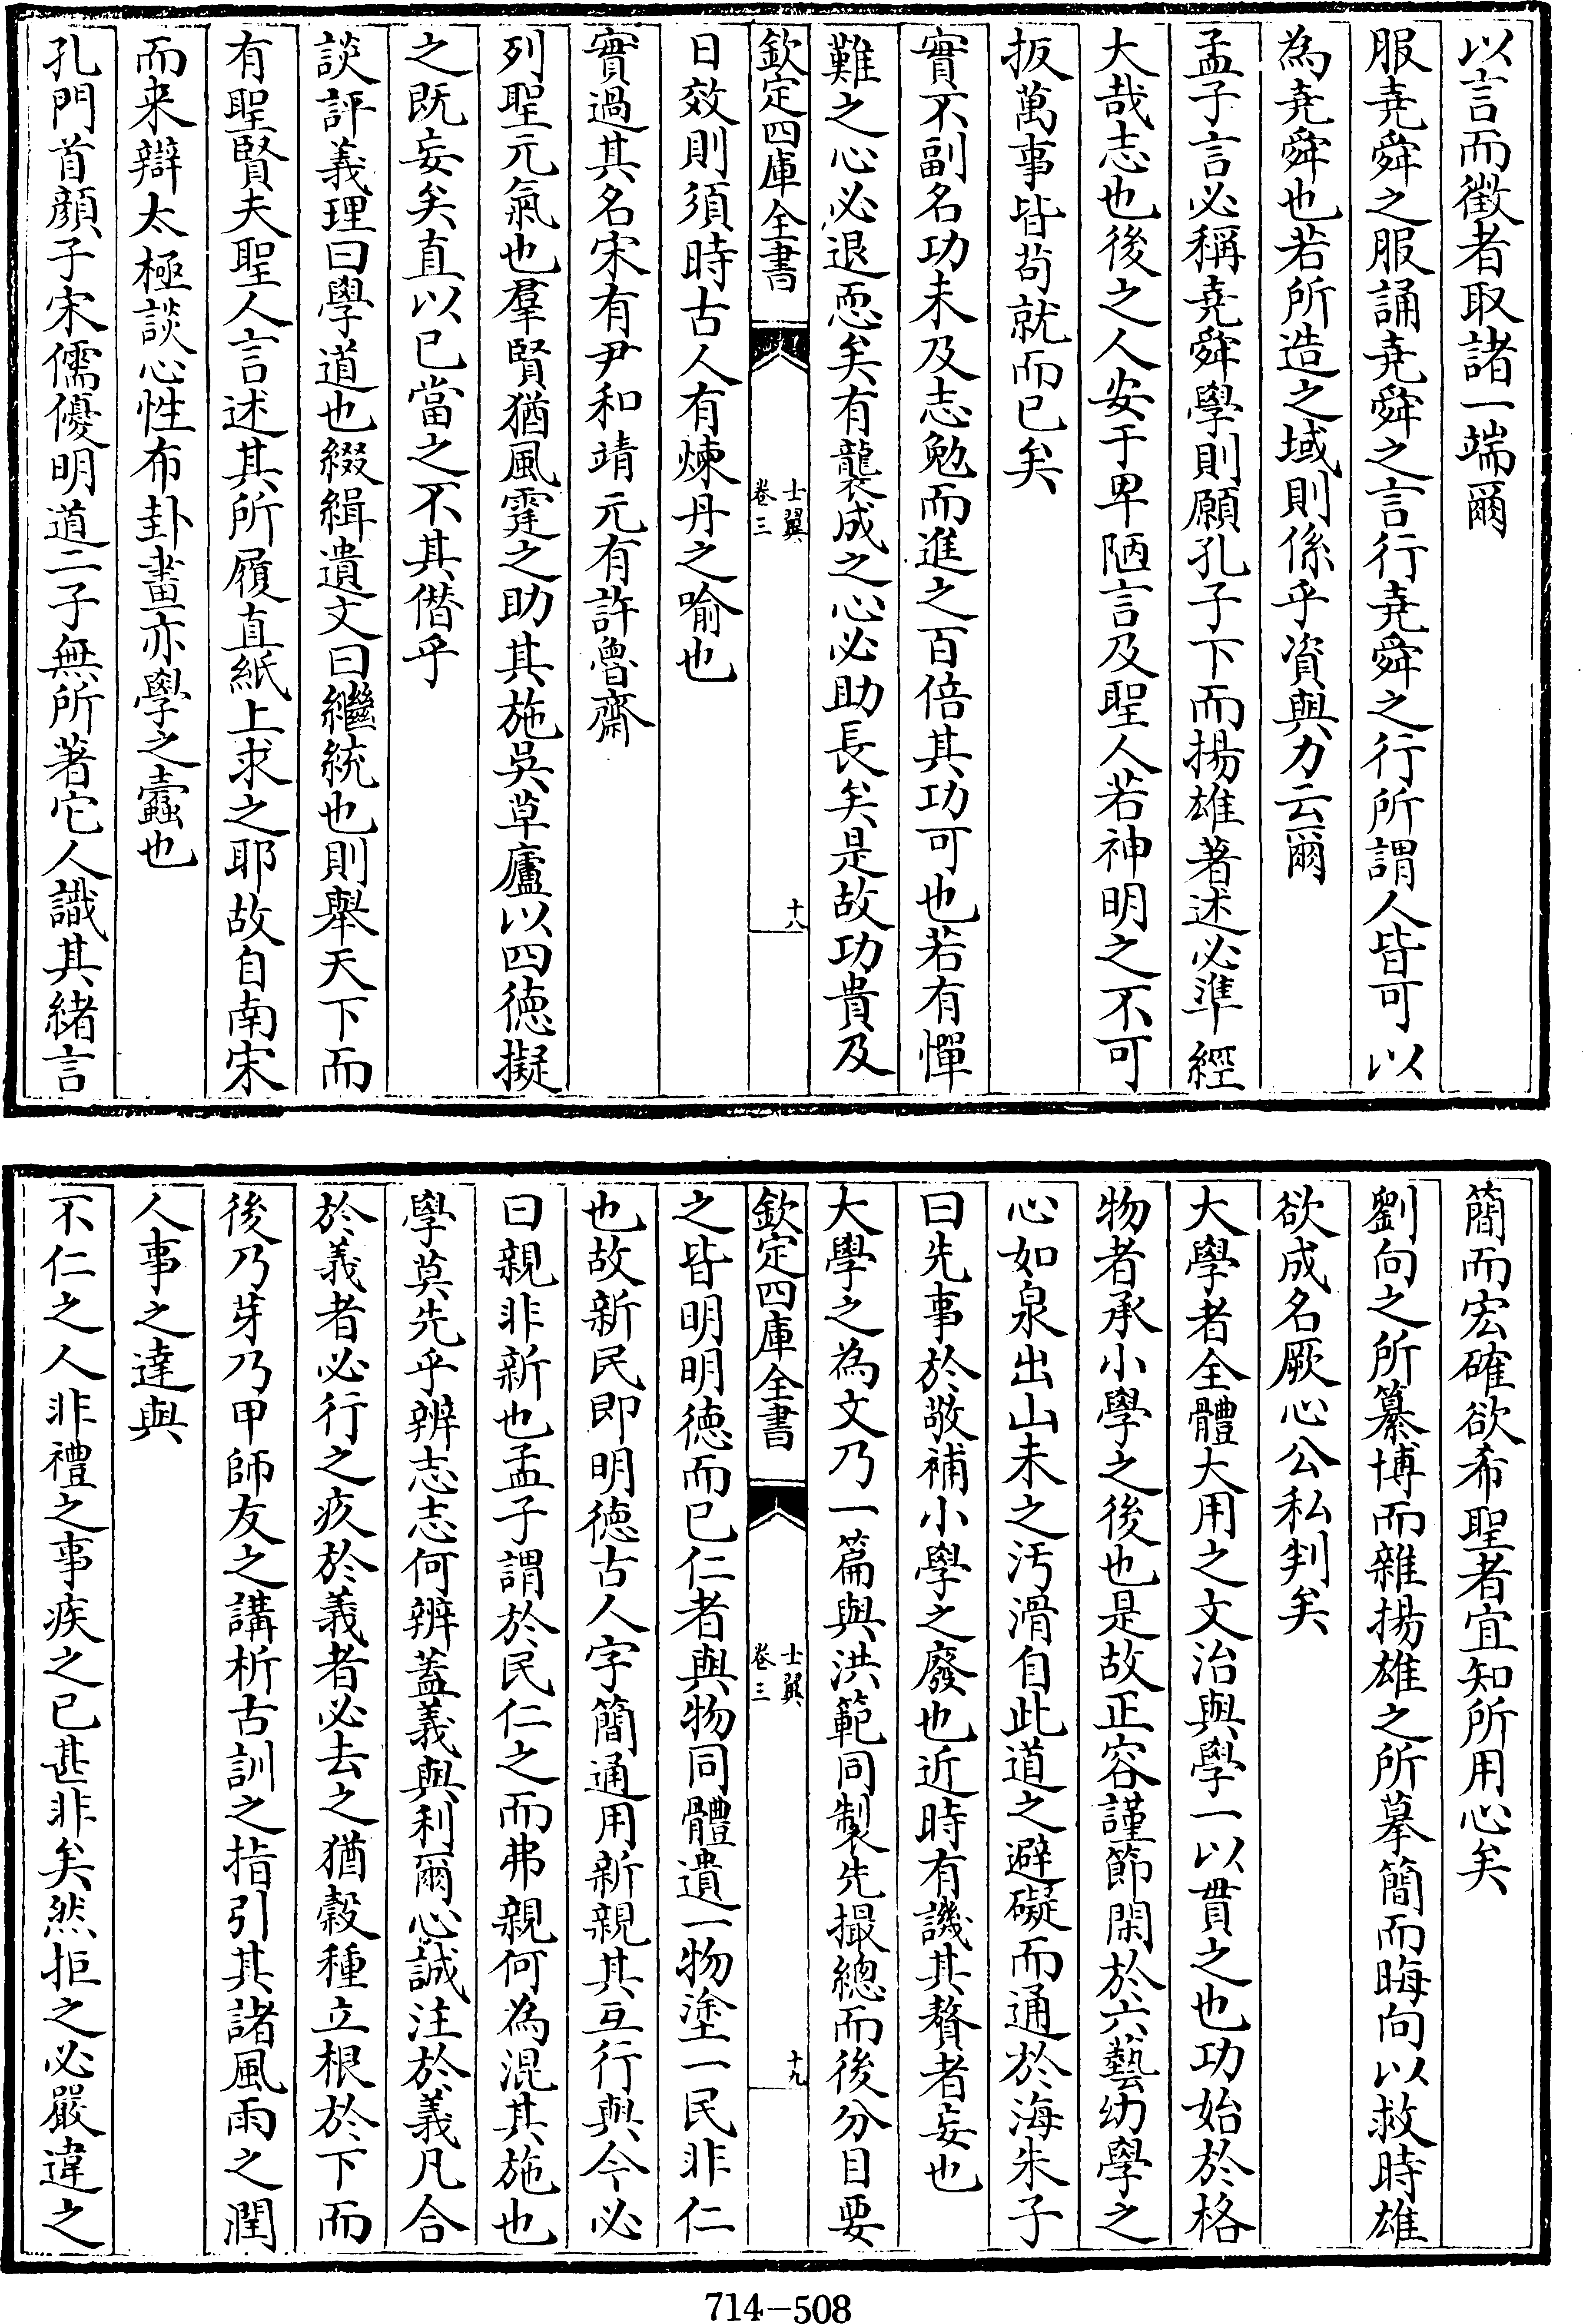 以言而徵者取諸一端爾
服堯舜之服誦堯舜之言行堯舜之行所謂人皆可以
為堯舜也若所造之域則係乎資與力云爾
孟子言必稱堯舜學則願孔子下而揚雄著述必準經
大哉志也後之人安于卑陋言及聖人若神明之不可
扳萬事皆茍就而已矣
實不副名功未及志勉而進之百倍其功可也若有憚
難之心必退恧矣有襲成之心必助長矣是故功貴及
欽定四庫全書
士翼
卷三
十八
日效則須時古人有煉丹之喻也
實過其名宋有尹和靖元有許魯齋
列聖元氣也羣賢猶風霆之助其施吳草廬以四德擬
之既妄矣直以已當之不其僭乎
談評義理曰學道也綴緝遺文曰繼統也則舉天下而
有聖賢夫聖人言述其所履直紙上求之耶故自南宋
而来辯太極談心性布卦畫亦學之蠧也
孔門首顔子宋儒優明道二子無所著它人識其緒言
簡而宏確欲希聖者宜知所用心矣
劉向之所纂博而雜揚雄之所摹簡而晦向以救時雄
欲成名厥心公私判矣
大學者全體大用之文治與學一以貫之也功始於格
物者承小學之後也是故正容謹節閑於六藝幼學之
心如泉出山未之汚滑自此道之避礙而通於海朱子
曰先事於敬補小學之廢也近時有譏其贅者妄也
大學之為文乃一篇與洪範同製先撮總而後分目要
欽定四庫全書
士翼
卷三
十九
之皆明明德而已仁者與物同體遺一物塗一民非仁
也故新民即明德古人字簡通用新親其互行與今必
曰親非新也孟子謂於民仁之而弗親何為混其施也
學莫先乎辨志志何辨蓋義與利爾心誠注於義凡合
於義者必行之疚於義者必去之猶穀種立根於下而
後乃芽乃甲師友之講析古訓之指引其諸風雨之潤
人事之達與
不仁之人非禮之事疾之已甚非矣然拒之必嚴違之
714-508